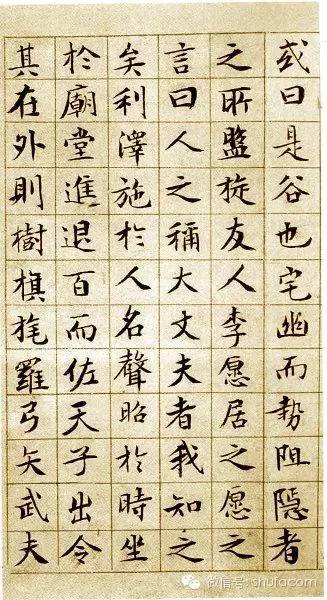 或曰是谷也宅幽而勢阻隱者
之所盤旋友人李愿居之愿之
言曰人之稱大丈夫者我知之
矣利澤施於人名聲昭於時坐
於廟堂進退百而佐天子出令
其在外則樹旗旄羅弓矢武夫
微信号: shufacom